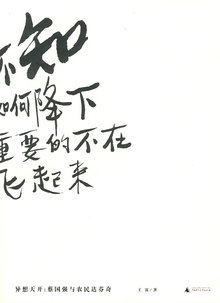 不知
如何降下
重要的不在
飞起来
异想天开：蔡国强与农民达芬奇
王寅／著